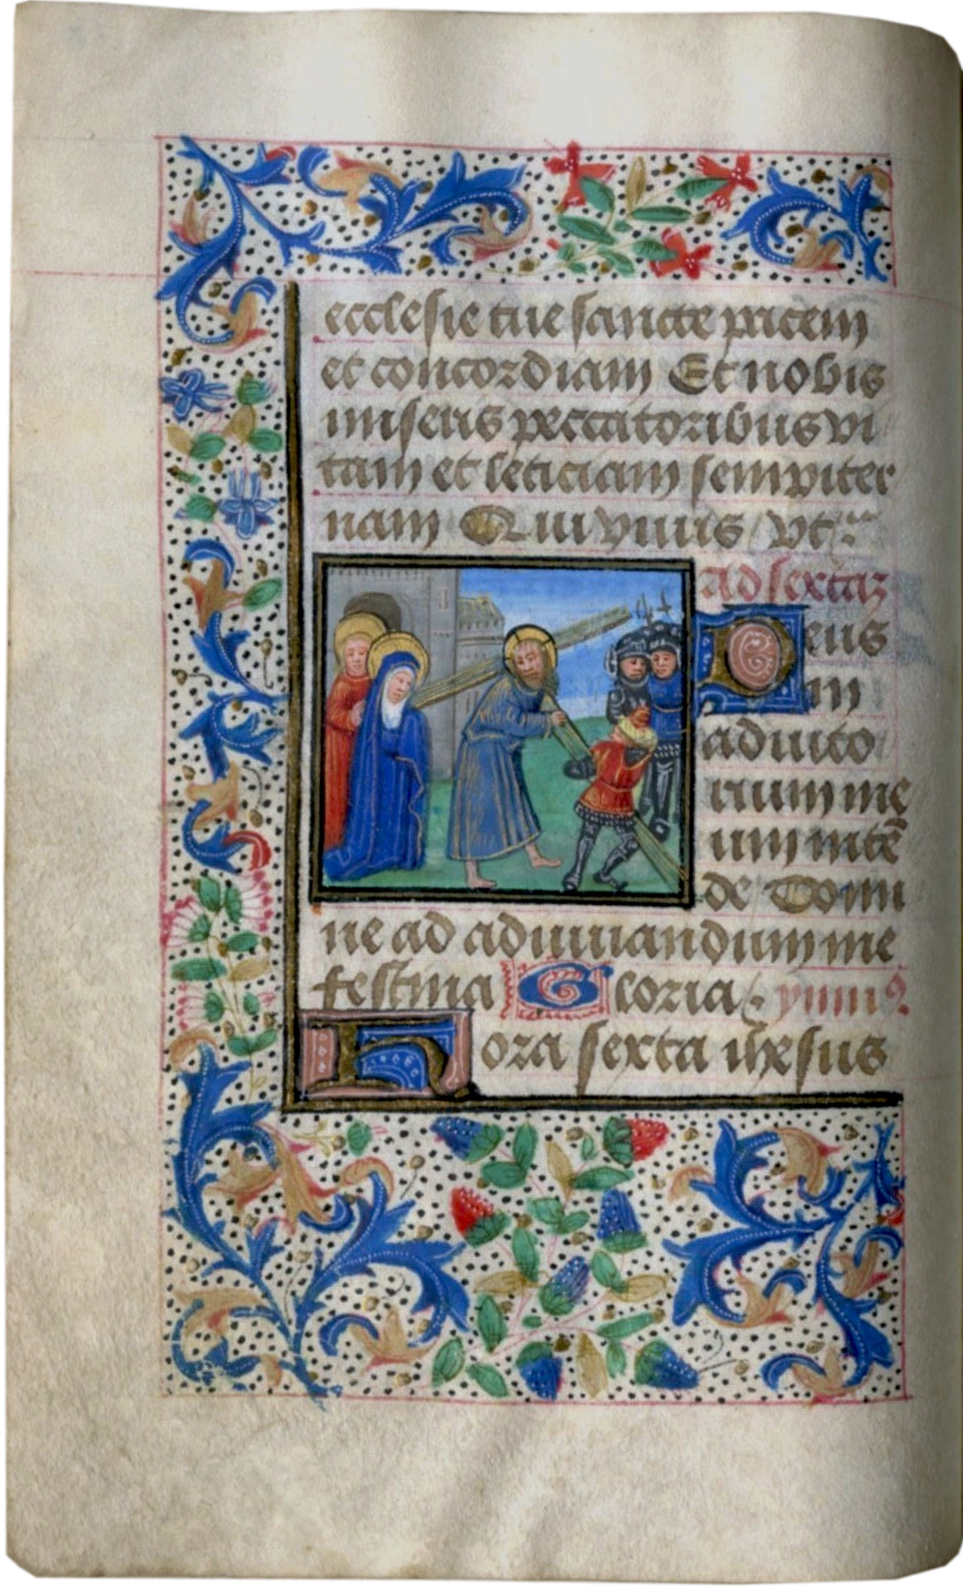 ecclesie tue sancte pacem
et concordiam Et nobis
miseris peccatoribus vi
tam et leticiam sempiter
nam Qui viuis vt
ad sextaz
Deus
in
adiuto
rium me
um intē
de Domi
ne ad adiuuandum me
festina Gloria ymnꝰ
Hora sexta ihesus